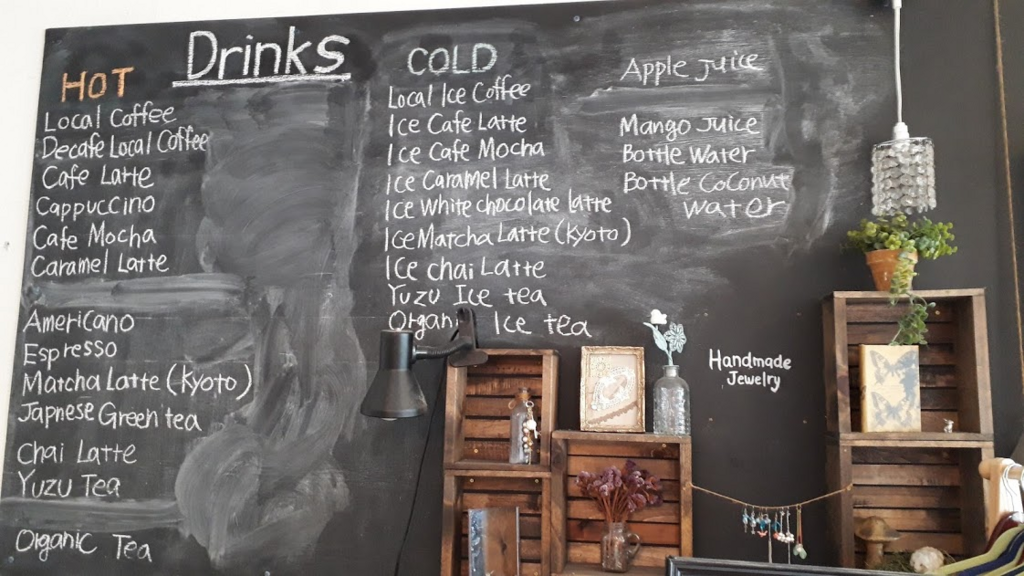 Drinks
HOT
Local Coffee
Decafe Local Coffee
Cafe Latte
Cappuccino
Cafe Mocha
Caramel Latte
Americano
Espresso
Matcha Latte (Kyoto)
Japnese Green tea
Chai Latte
Yuzu Tea
Organic Tea
COLD
Local Ice Coffee
Ice Cafe Latte
Ice Cafe Mocha
Ice Caramel Latte
Ice White chocolate latte
Ice Matcha Latte (Kyoto)
Ice chai Latte
Yuzu Ice tea
Ice tea
Apple Juice
Mango Juice
Bottle Water
Bottle Coconut
water
Handmade
Jewelry